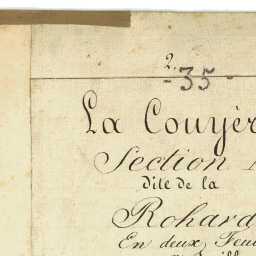 2.
- 35 -
La Couyèr
Section
dite de la
Rohard
En deux Feui